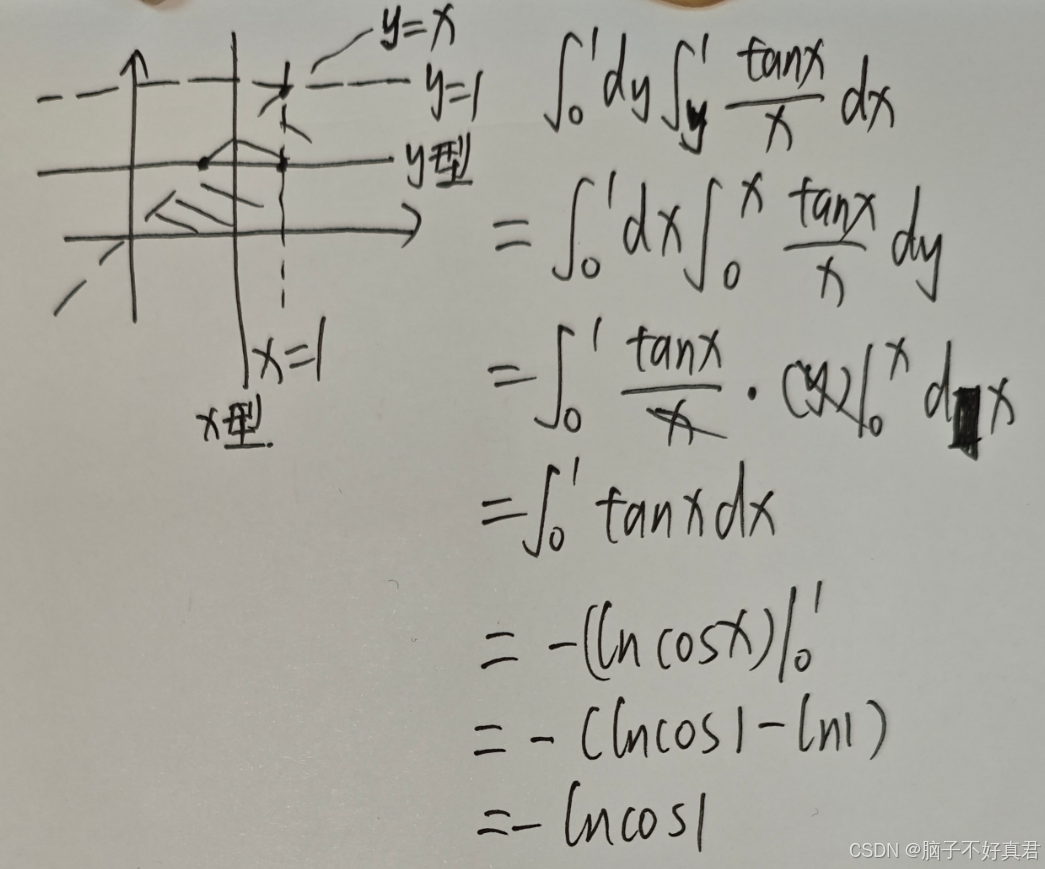 y=x
y=1
y型
x=1
x型
∫₀¹dy∫ᵧ¹ tanx/x dx
=∫₀¹dx∫₀ˣ tanx/x dy
=∫₀¹ tanx/x · (y)|₀ˣ dx
=∫₀¹ tanxdx
= -(lncosx)|₀¹
= -(lncos1-ln1)
=-lncos1
CSDN @脑子不好真君